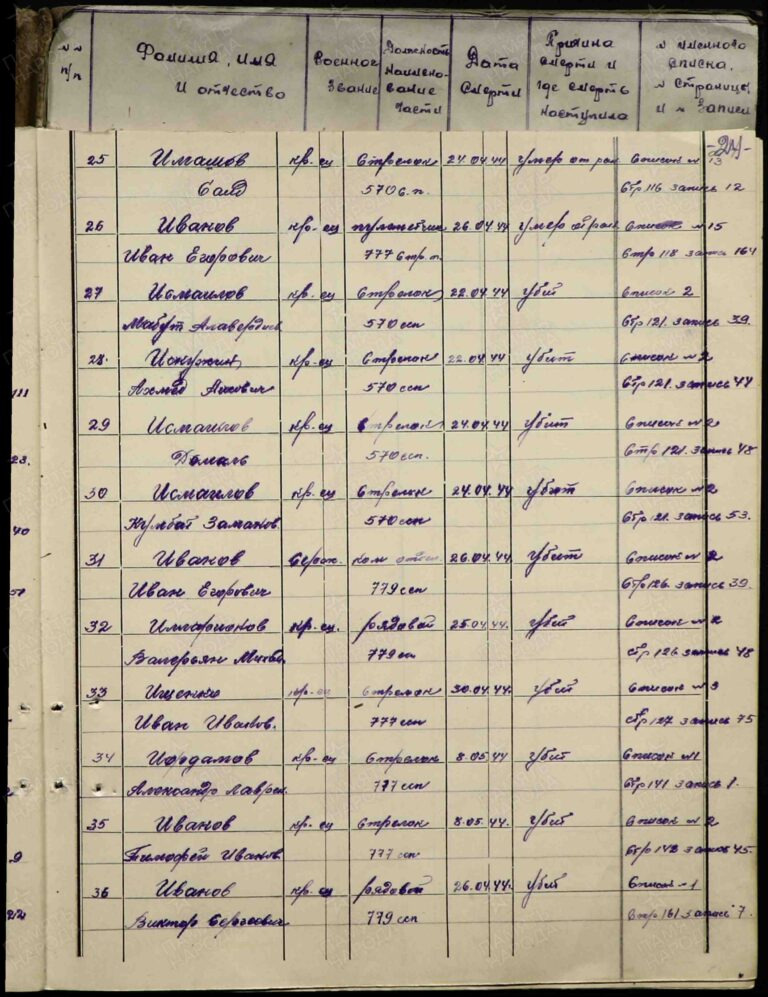 № № п/п Фамилия, имя и отчество Военное звание Должность наимено-вание части Дата смерти Причина смерти и где смерть наступила № именного списка, № страницы и № записи
-24-
25 Имамов кр-ец Стрелок 24.04.44 умер от ран Список № 13
Саид 570 с.п. Стр 116 запись 12
26 Иванов кр-ец пулеметчик 26.04.44 умер от ран Список № 15
Иван Егорович 777 стр.п. Стр 118 запись 164
27 Исмаилов кр-ец Стрелок 22.04.44 убит Список 2
570 ссп Стр 121. запись 39.
28. кр-ец Стрелок 22.04.44 убит Список № 2
Ахмед 570 ссп Стр 121. запись 44
29 Исмаилов кр-ец Стрелок 24.04.44 убит Список № 2
570 ссп. Стр 121. запись 48
30 Исмаилов кр-ец Стрелок 24.04.44 убит Список № 2
Заманов 570 ссп Стр 121. запись 53.
31 Иванов Серж. ком отд. 26.04.44. убит Список № 2
Иван Егорович 779 ссп Стр 126. запись 39.
32 кр-ец. рядовой 25.04.44. убит Список № 2
Валерьян 779 сп Стр 126 запись 48
33 Ищенко кр-ец Стрелок 30.04.44. убит Список № 3
Иван Иванов. 777 ссп Стр 127 запись 75
34 кр-ец Стрелок 8.05.44 убит Список №1
Александр Лаврен. 777 ссп Стр 141 запись 1.
35 Иванов кр-ец Стрелок 8.05.44. убит Список № 2
Тимофей Иванов. 777 ссп Стр 142 запись 45.
36 Иванов кр-ец рядовой 26.04.44. убит Список №1
Виктор Сергеевич 779 ссп Стр 161 запись 7.